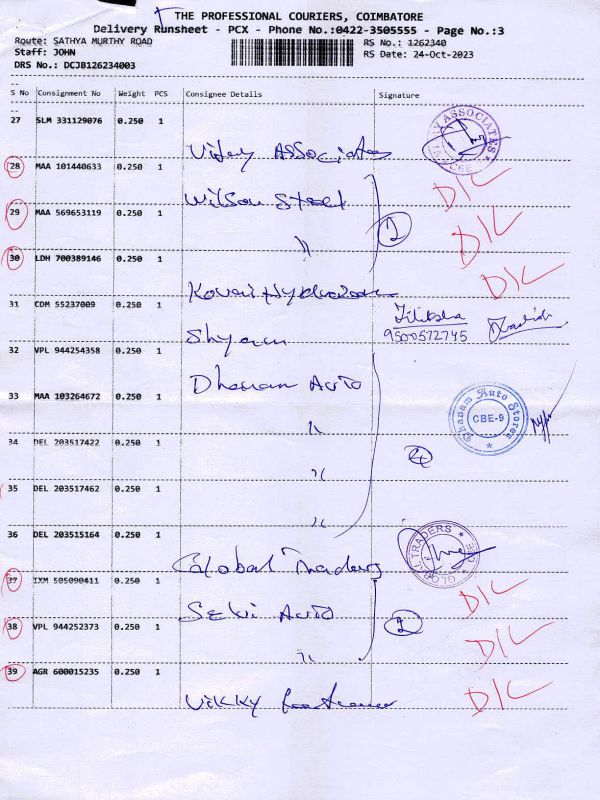 THE PROFESSIONAL COURIERS, COIMBATORE
Delivery Runsheet - PCX - Phone No.:0422-3505555 - Page No.:3
Route: SATHYA MURTHY ROAD RS No.: 1262340
Staff: JOHN RS Date: 24-Oct-2023
DRS No.: DCJB126234003
S No Consignment No Weight PCS Consignee Details Signature
27 SLM 331129076 0.250 1
Vijay Associates
28 MAA 101440633 0.250 1 D/L
Wilson Steel
29 MAA 569653119 0.250 1 D/L
" 2
30 LDH 700389146 0.250 1 D/L
Kovai
31 CDM 55237009 0.250 1
Shyam 9500572745
32 VPL 944254358 0.250 1
Dhanam Auto
33 MAA 103264672 0.250 1 Dhanam Auto Stores CBE-9
"
34 DEL 203517422 0.250 1 4
"
35 DEL 203517462 0.250 1
"
36 DEL 203515164 0.250 1 GLOBAL TRADERS
Global Traders
37 IXM 505090411 0.250 1 D/L
Selvi Auto
38 VPL 944252373 0.250 1 2 D/L
"
39 AGR 600015235 0.250 1 D/L
Vikky